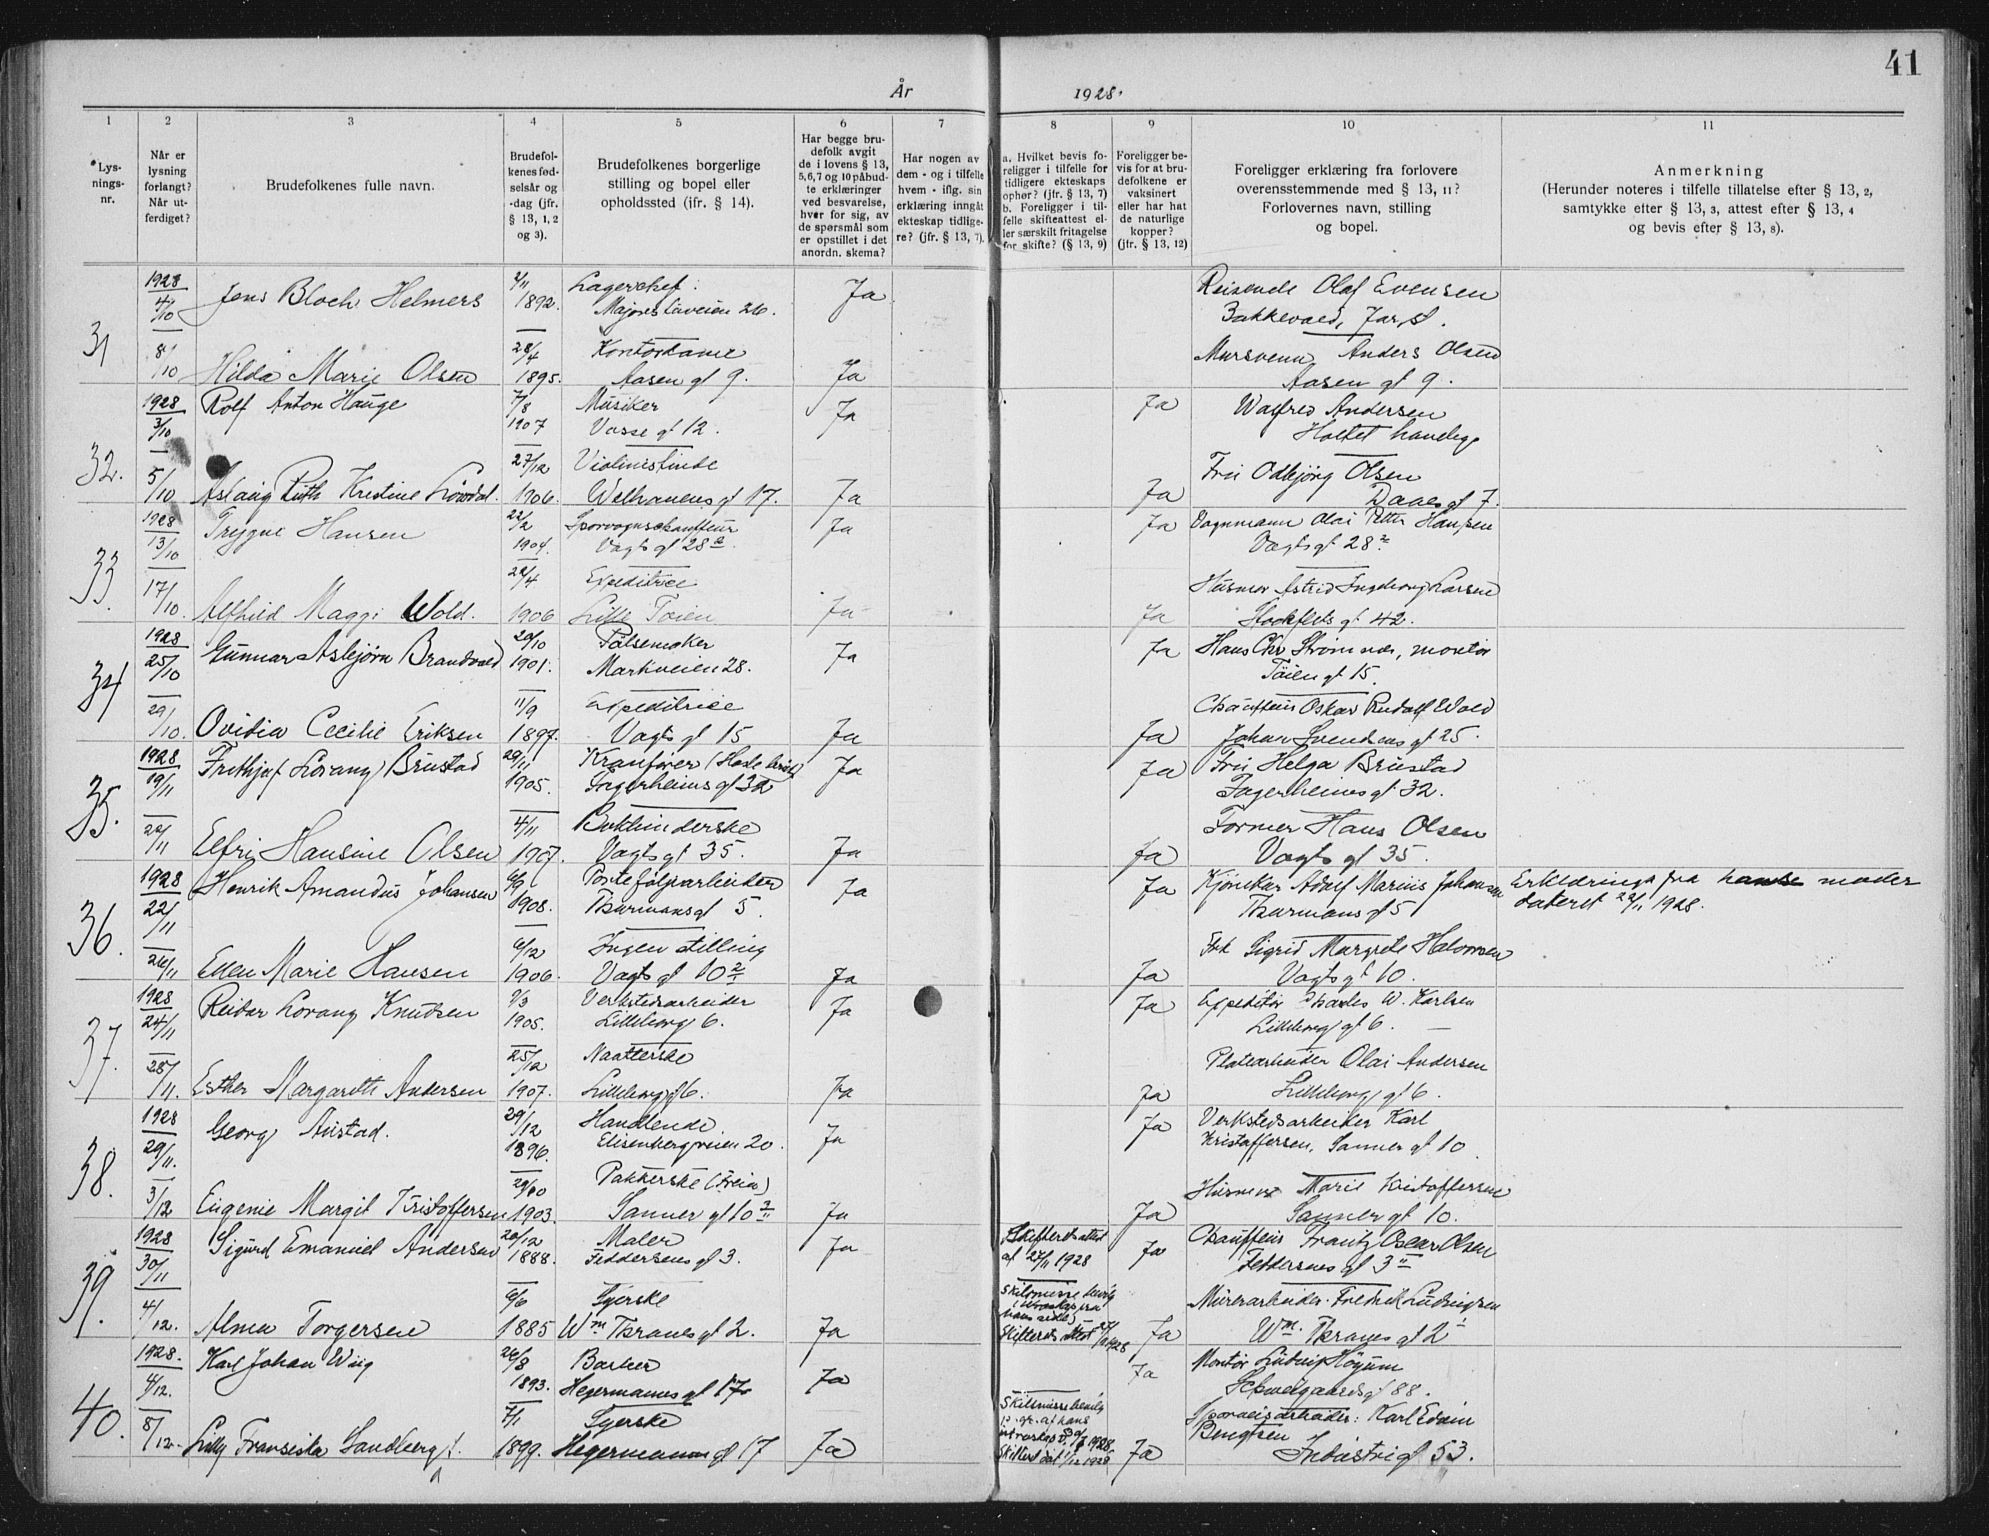 41
År 1928.
1 2 3 4 5 6 7 8 9 10 11
*Lys-
nings-
nr.
Når er
lysning
forlangt?
Når ut-
ferdiget?
Brudefolkenes fulle navn.
Brudefol-
kenes fød-
selsår og
-dag (jfr.
§ 13, 1, 2
og 3).
Brudefolkenes borgerlige
stilling og bopel eller
opholdssted (ifr. § 14).
Har begge bru-
defolk avgit
de i lovens § 13,
5,6,7 og 10 påbud-
te erklæringer
ved besvarelse,
hver for sig, av
de spørsmål som
er opstillet i det
anordn. skema?
Har nogen av
dem - og i tilfelle
hvem - iflg. sin
erklæring inngåt
ekteskap tidlige-
re? (jfr. § 13, 7).
a. Hvilket bevis fo-
religger i tilfelle for
tidligere ekteskaps
ophør? (jfr. § 13, 7)
b. Foreligger i til-
felle skifteattest el-
ler særskilt fritagelse
for skifte? (§ 13, 9)
Foreligger be-
vis for at bru-
defolkene er
vaksinert
eller har hat
de naturlige
kopper?
(jfr. § 13, 12)
Foreligger erklæring fra forlovere
overensstemmende med § 13, 11?
Forlovernes navn, stilling
og bopel.
Anmerkning
(Herunder noteres i tilfelle tillatelse efter § 13, 2,
samtykke efter § 13, 3, attest efter § 13, 4
og bevis efter § 13, 8).
31
1928 4/10 Jens Bloch Helmers 2/11 1892. Lagerchef. Ja Reisende Olaf Evensen
Majorstuveien 26.
8/10 Hilda Marie Olsen 28/4 1895. Kontordame Ja Mursvenn Anders Olsen
Aasen gt 9. Aasen gt 9.
32.
1928 3/10 Rolf Anton Hauge 7/8 1907 Musiker Ja Ja Walfred Andersen
Vosse gt 12.
5/10 Aslaug Ruth Kristine 27/12 1906. Violinistinde Ja Ja Fru Odbjörg Olsen
Welhavens gt 17. Daaes gt 7.
33.
1928 13/10 Trygve Hansen 22/2 1904. Sporvognschauffeur Ja Ja Vognmann Olai Petter Hansen
Vogts gt 28 Vogts gt 28
17/10. Alfhild Maggi Wold. 22/4 1906 Expeditrice Ja Ja Husmor Astrid Ingeborg Larsen
Lille Töien Stockflets gt 42.
34
1928 25/10 Gunnar Asbjörn Brandvold 20/10 1901. Pölsemaker Ja Ja Hans Chr. Strömnæs, montör
Markveien 28. Töien gt 15.
29/10. Ovidia Cecilie Eriksen 11/9 1897. Expeditrice Ja Ja Chauffeur Oskar Rudolf Wold
Vogts gt 15 Johan Svendsens gt 25.
35.
1928 19/11 Frithjof Lorang Brustad 29/11 1905. Kranförer Ja Ja Fru Helga Brustad
Fagerheims gt 32 Fagerheims gt 32.
22/11 Elfri Hansine Olsen 4/11 1907. Bokbinderske Ja Ja Former Hans Olsen
Vogts gt 35. Vogts gt 35.
36.
1928 22/11 Henrik Amandus Johansen 6/9 1908. Porteföljearbeider Ja Ja Kjörekar Adolf Marius Johansen Erklæring fra hans moder
Thurmans gt 5. Thurmans gt 5 dateret 22/11 1928.
26/11 Ellen Marie Hansen 6/12 1906. Ingen stilling Ja Ja Frk Sigrid Margrete Halvorsen
Vogts gt 10 Vogts gt 10.
37.
1928 24/11 Reidar Lorang Knudsen 9/3 1905. Verkstedsarbeider Ja Ja Expeditör Charles W. Karlsen
Lilleborg 6. Lilleborg gt 6.
28/11. Esther Margareth Andersen 25/12 1907. Naatterske Ja Ja Platearbeider Olai Andersen
Lilleborg gt 6. Lilleborg gt 6.
38.
1928 29/11. Georg Austad. 29/12 1896. Handlende Ja Ja Verkstedsarbeider Karl
Elisenbergveien 20. Kristoffersen, Sanner gt 10
3/12 Eugenie Margit Kristoffersen 1903. Pakkerske (Freia) Ja Ja Husmor Marie Kristoffersen
Sanner gt 10 Sanner gt 10.
39.
1928 30/11 Sigurd Emanuel Andersen 20/12 1888. Maler Ja Skifterets attest Ja Chauffeur Frantz Oscar Olsen
Feddersens gt 3. af 27/11 1928 Feddersens gt 3
4/12. Alma Torgersen 6/6 1885 Syerske Ja Skilsmisse bevilg Ja Murerarbeider Fredrik Ludvigsen
Wm Thranes gt 2. Skifterets attest Wm. Thranes gt 2
40.
1928. 4/12. Karl Johan Wiig 26/8 1893. Barber Ja Ja Montör Ludvig Höyum
Hegermanns gt 17. Schweigaards gt 88.
8/12. Lilly Fransiska Sandberg f. 7/1 1899. Syerske Ja Skilsmisse bevilg Ja Sporveisarbeider: Karl Edvin
Hegermanns gt 17 Bengtsen
Industri gt 53.